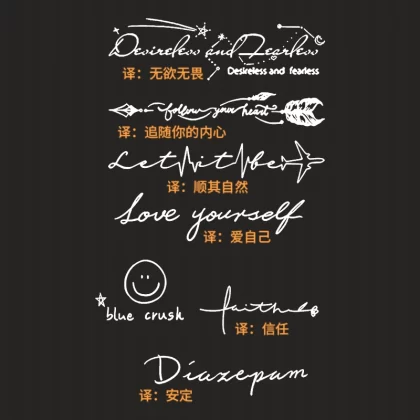 Desireless and Fearless
译：无欲无畏
Desireless and fearless
follow your heart
译：追随你的内心
Let it be
译：顺其自然
Love yourself
译：爱自己
blue crush
faith
译：信任
Diazepam
译：安定